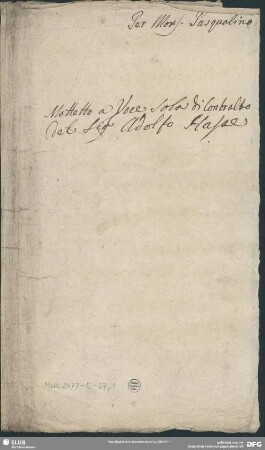 Per Mons. Pasqualino
Mottetto a Voce Sola di Contralto
Del Sig. Adolfo Hasse
Mus. 2477-E-37,1
1
SLUB
DFG